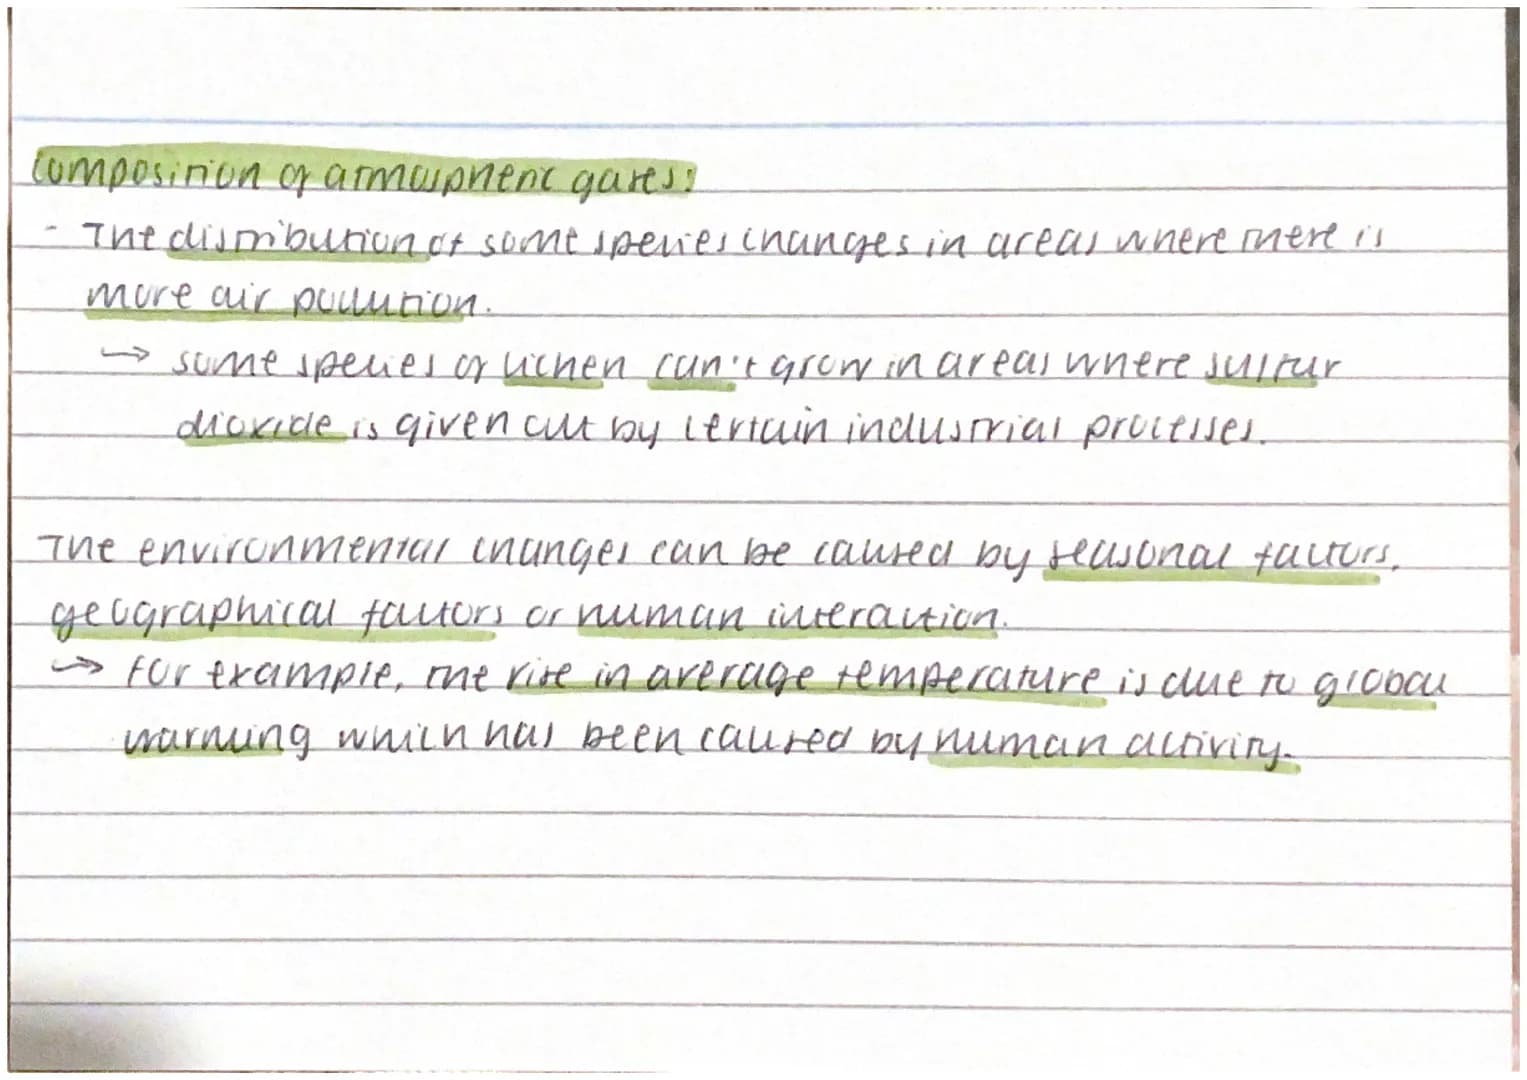 Composition of atmospheric gases:
- The distribution of some species changes in areas where there is
more air pollution.
→ some species of lichen can't grow in areas where sulfur
dioxide is given out by certain industrial processes.
The environmental changes can be caused by seasonal factors,
geographical factors or human interaction.
→ For example, the rise in average temperature is due to global
warming which has been caused by human activity.